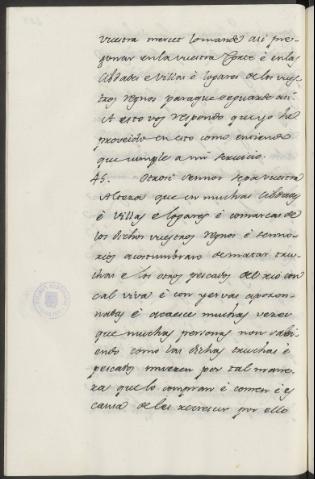 vuestra merced lo mande asi pre-
gonar en la vuestra Corte è en las
Cibdades è Villas è logares de los vues-
tros regnos para que se guarde asi.
A esto vos respondo que yo he
proveido en esto como entiendo
que cumple a mi servicio.
45. Otrosi Sennor sepa vuestra
Alteza que en muchas Cibdades
è Villas è logares è comarcas de
los dichos vuestros regnos è senno-
rios acostumbraron de matar tru-
chas è los otros pescados del rio con
cal viva è con yervas aponzon-
nadas è acaece muchas veces
que muchas personas non sabi-
endo como las dichas truchas è
pescados mueren por tal mane-
ra que lo compran è comen è es
causa de les recrescer por ello